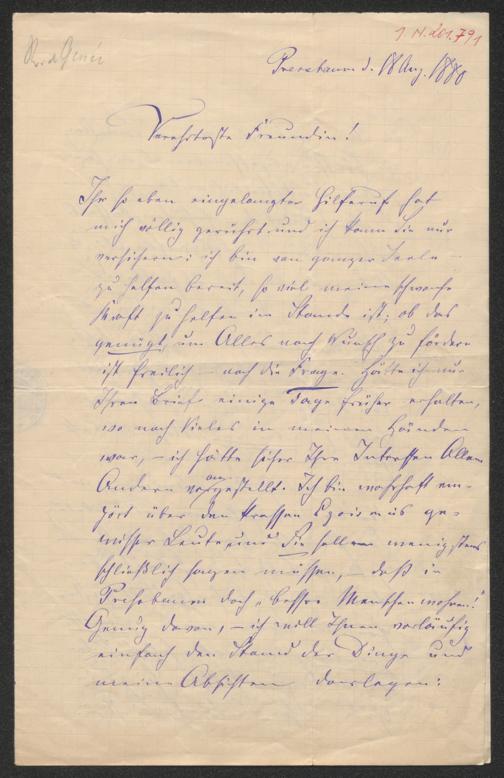 1 N. 201.791
Pressbaum d. 18 Aug. 1880
Verehrteste Freundin!
Ihr so eben eingelangter Hilferuf hat
mich völlig gerührt und ich kann Sie nur
versichern: ich bin von ganzer Seele
zu helfen bereit, so viel meine schwache
Kraft zu helfen im Stande ist; ob das
genügt, um Alles nach Wunsch zu fördern
ist freilich noch die Frage. Hätte ich nur
Ihren Brief einige Tage früher erhalten,
wo noch Vieles in meinen Händen
war, – ich hätte sicher Ihre Interessen Allem
Andern vorangestellt. Ich bin wahrhaft em-
pört über den krassen Egoismus ge-
wisser Leute, und Sie sollen wenigstens
schließlich sagen müssen, daß in
Preßbaum doch „bessre Menschen wohnen!"
Genug davon, – ich will Ihnen vorläufig
einfach den Stand der Dinge und
meine Absichten darlegen: